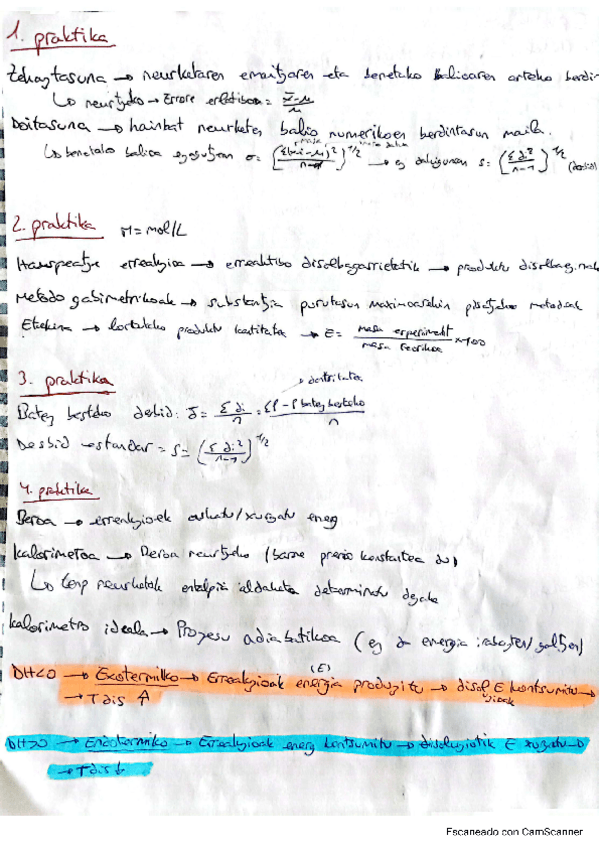 1. praktika
Zehaztasuna → neurketaren emaitzaren eta benetako balioaren arteko berdin
↳ neurtzeko → Errore erlatiboa = x̄-μ/μ
Doitasuna → hainbat neurketen balio numerikoen berdintasun maila.
↳ benetako balioa ezagutzean σ = (Σ(xi-μ)²/n)^1/2 → ez dakigunean s = (Σdi²/n-1)^1/2
2. praktika M = mol/L
Hauspeatze erreakzioa → erreaktibo disolbagarrietatik → produktu disolbag.
Metodo grabimetrikoak → substantzia purutasun maximoarekin pisatzeko metodoak
Etekina → lortutako produktu kantitatea → E = masa experimentl/masa teorikoa ×100
3. praktika
→ dentsitatea
Batez besteko desbid: d̄ = Σdi/n = Σρ-ρ batez besteko/n
Desbid estandar = s = (Σdi²/n-1)^1/2
4. praktika
Beroa → erreakzioek askatu/xurgatu energ
Kalorimetroa → Beroa neurtzeko (barne presio konstantea du)
↳ Tenp neurketak entalpia aldaketa determinatu dezake
Kalorimetro ideala → Prozesu adiabatikoa (ez da energia irabazten/galtzen)
DH<0 → Exotermiko → Erreakzioak energia (E) produzitu → disoluzioak E kontsumitu →
→ T dis ↑
DH>0 → Endotermiko → Erreakzioak energ kontsumitu → disoluziotik E xurgatu →
→ T dis ↓
Escaneado con CamScanner